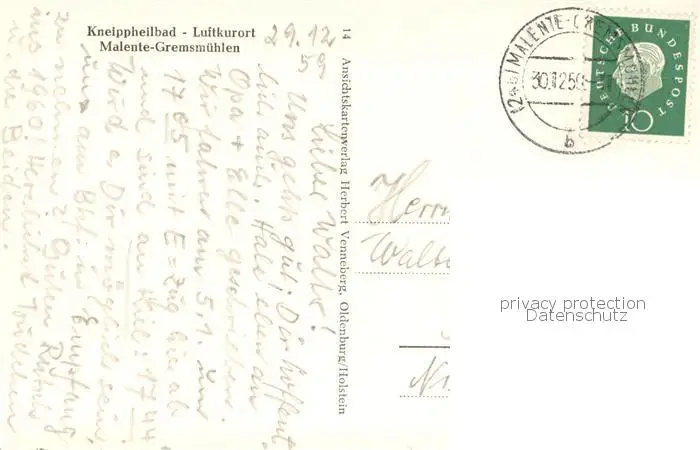 Kneippheilbad - Luftkurort
Malente-Gremsmühlen
29.12
59
Lieber Walter!
Uns geht's gut, Dir hoffent
lich auch. Habe eben an
Opa + Elle geschrieben.
Wir fahren am 5.1. um
17 05 mit E-Zug hier ab
und sind an Kiel: 17 44
Wird es Dir möglich sein,
uns Bhf. in Empfang
zu nehmen? Guten Rutsch
ins 1960! Herzlichst
Beiden.
14 Ansichtskartenverlag Herbert Venneberg, Oldenburg/Holstein
Herrn
(24b) MALENTE-
30.12.59
b
DEUTSCHE BUNDESPOST
10
privacy protection
Datenschutz